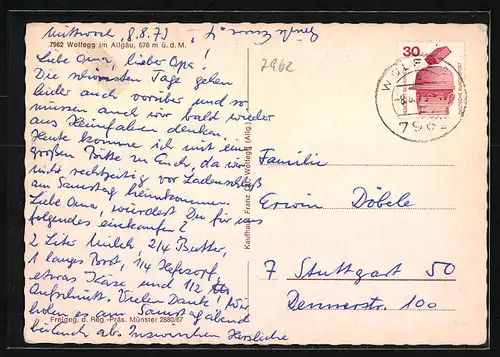 Mittwoch, 8.8.73
7962 Wolfegg im Allgäu, 678 m ü. d. M.
Liebe Oma, lieber Opa!
Die schönsten Tage gehen
leider auch vorüber und so
müssen auch wir bald wieder
ans Heimfahren denken.
Heute komme ich mit einer
großen Bitte zu Euch, da wir
nicht rechtzeitig vor Ladenschluß
am Samstag heimkommen.
Liebe Oma, würdest Du für uns
folgendes einkaufen?
2 Liter Milch, 2/4 Butter,
1 langes Brot, 1/4
etwas Käse und 1/2
Aufschnitt. Vielen Dank! Wir
holen es am Samstag abend
bei Euch ab. Inzwischen Herzliche
Freigeg. d. Reg.-Präs. Münster 2880/67
Kaufhaus Franz Wolfegg (Allg.)
7962
30
DEUTSCHE BUNDESPOST
-8.8.73
7962
Familie
Erwin Döbele
7 Stuttgart 50
100